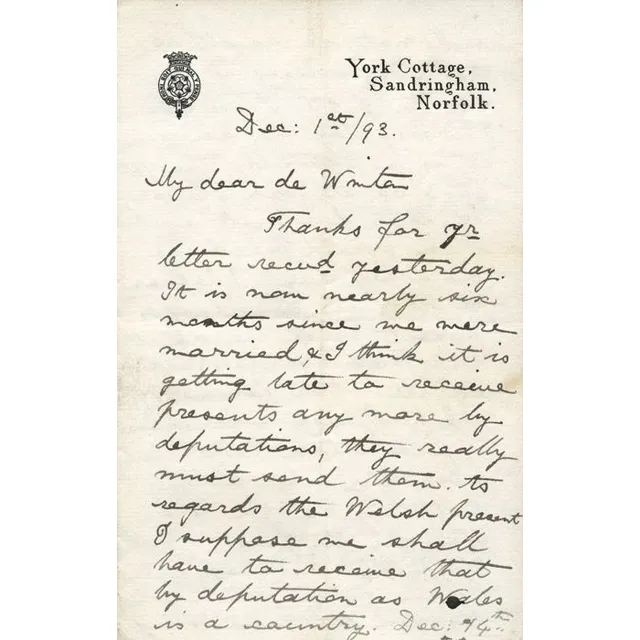 York Cottage,
Sandringham,
Norfolk.
Dec: 1st/93.
My dear de Winton
Thanks for yr
letter recvd yesterday.
It is now nearly six
months since we were
married, & I think it is
getting late to receive
presents any more by
deputations, they really
must send them. As
regards the Welsh present
I suppose we shall
have to receive that
by deputation as Wales
is a country. Dec: 14th